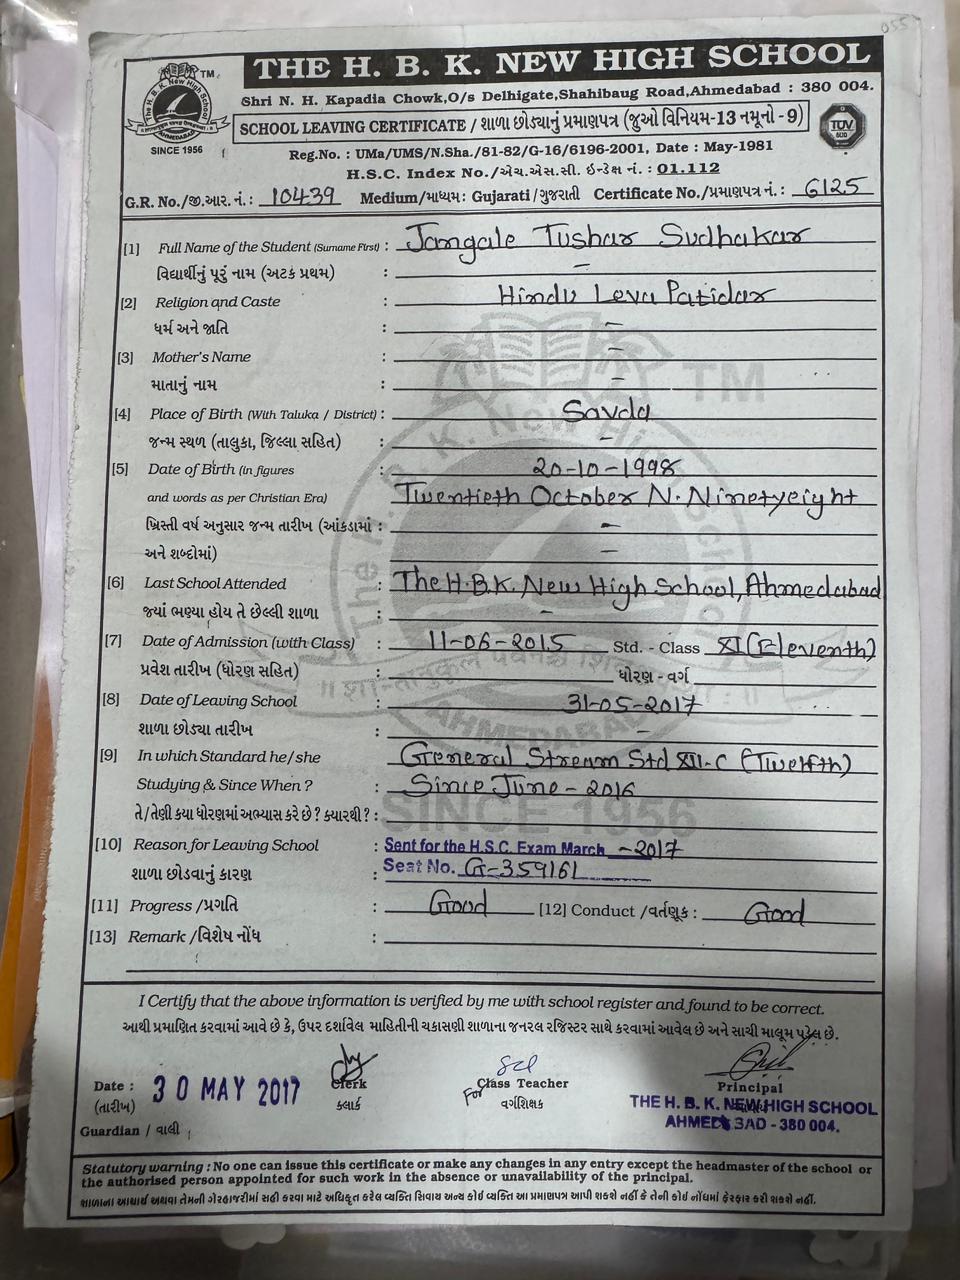 055
THE H. B. K. NEW HIGH SCHOOL
Shri N. H. Kapadia Chowk,O/s Delhigate,Shahibaug Road,Ahmedabad : 380 004.
SCHOOL LEAVING CERTIFICATE / શાળા છોડ્યાનું પ્રમાણપત્ર (જુઓ વિનિયમ-13 નમૂનો - 9)
TM
SINCE 1956
TUV
Reg.No. : UMa/UMS/N.Sha./81-82/G-16/6196-2001, Date : May-1981
H.S.C. Index No./એચ.એસ.સી. ઇન્ડેક્ષ નં. : 01.112
G.R. No./જી.આર. નં. : 10439 Medium/માધ્યમ: Gujarati/ગુજરાતી Certificate No./પ્રમાણપત્ર નં. : 6125
[1] Full Name of the Student (Surname First) : Jangale Tushar Sudhakar
વિદ્યાર્થીનું પૂરું નામ (અટક પ્રથમ) : –
[2] Religion and Caste : Hindu Leva Patidar
ધર્મ અને જાતિ : –
[3] Mother's Name : –
માતાનું નામ : –
[4] Place of Birth (With Taluka / District) : Savda
જન્મ સ્થળ (તાલુકા, જિલ્લા સહિત) : –
[5] Date of Birth (in figures : 20-10-1998
and words as per Christian Era) Twentieth October N. Ninetyeight
ખ્રિસ્તી વર્ષ અનુસાર જન્મ તારીખ (આંકડામાં : –
અને શબ્દોમાં) –
[6] Last School Attended : The H.B.K. New High School, Ahmedabad
જયાં ભણ્યા હોય તે છેલ્લી શાળા : –
[7] Date of Admission (with Class) : 11-06-2015 Std. - Class XI (Eleventh)
પ્રવેશ તારીખ (ધોરણ સહિત) : ધોરણ - વર્ગ
[8] Date of Leaving School : 31-05-2017
શાળા છોડ્યા તારીખ : –
[9] In which Standard he/she General Stream Std XII-C (Twelfth)
Studying & Since When ? : Since June - 2016
તે/તેણી કયા ધોરણમાં અભ્યાસ કરે છે? ક્યારથી? :
[10] Reason for Leaving School : Sent for the H.S.C. Exam March - 2017
શાળા છોડવાનું કારણ : Seat No. G-359161
[11] Progress /પ્રગતિ : Good [12] Conduct /વર્તણૂક : Good
[13] Remark /વિશેષ નોંધ :
I Certify that the above information is verified by me with school register and found to be correct.
આથી પ્રમાણિત કરવામાં આવે છે કે, ઉપર દર્શાવેલ માહિતીની ચકાસણી શાળાના જનરલ રજિસ્ટર સાથે કરવામાં આવેલ છે અને સાચી માલૂમ પડેલ છે.
Date : 30 MAY 2017 Clerk For Class Teacher Principal
(તારીખ) કલાર્ક વર્ગશિક્ષક
THE H. B. K. NEW HIGH SCHOOL
AHMEDABAD - 380 004.
Guardian / વાલી
Statutory warning : No one can issue this certificate or make any changes in any entry except the headmaster of the school or
the authorised person appointed for such work in the absence or unavailability of the principal.
શાળાના આચાર્ય અથવા તેમની ગેરહાજરીમાં સહી કરવા માટે અધિકૃત કરેલ વ્યક્તિ સિવાય અન્ય કોઈ વ્યક્તિ આ પ્રમાણપત્ર આપી શકશે નહીં કે તેની કોઈ નોંધમાં ફેરફાર કરી શકશે નહીં.